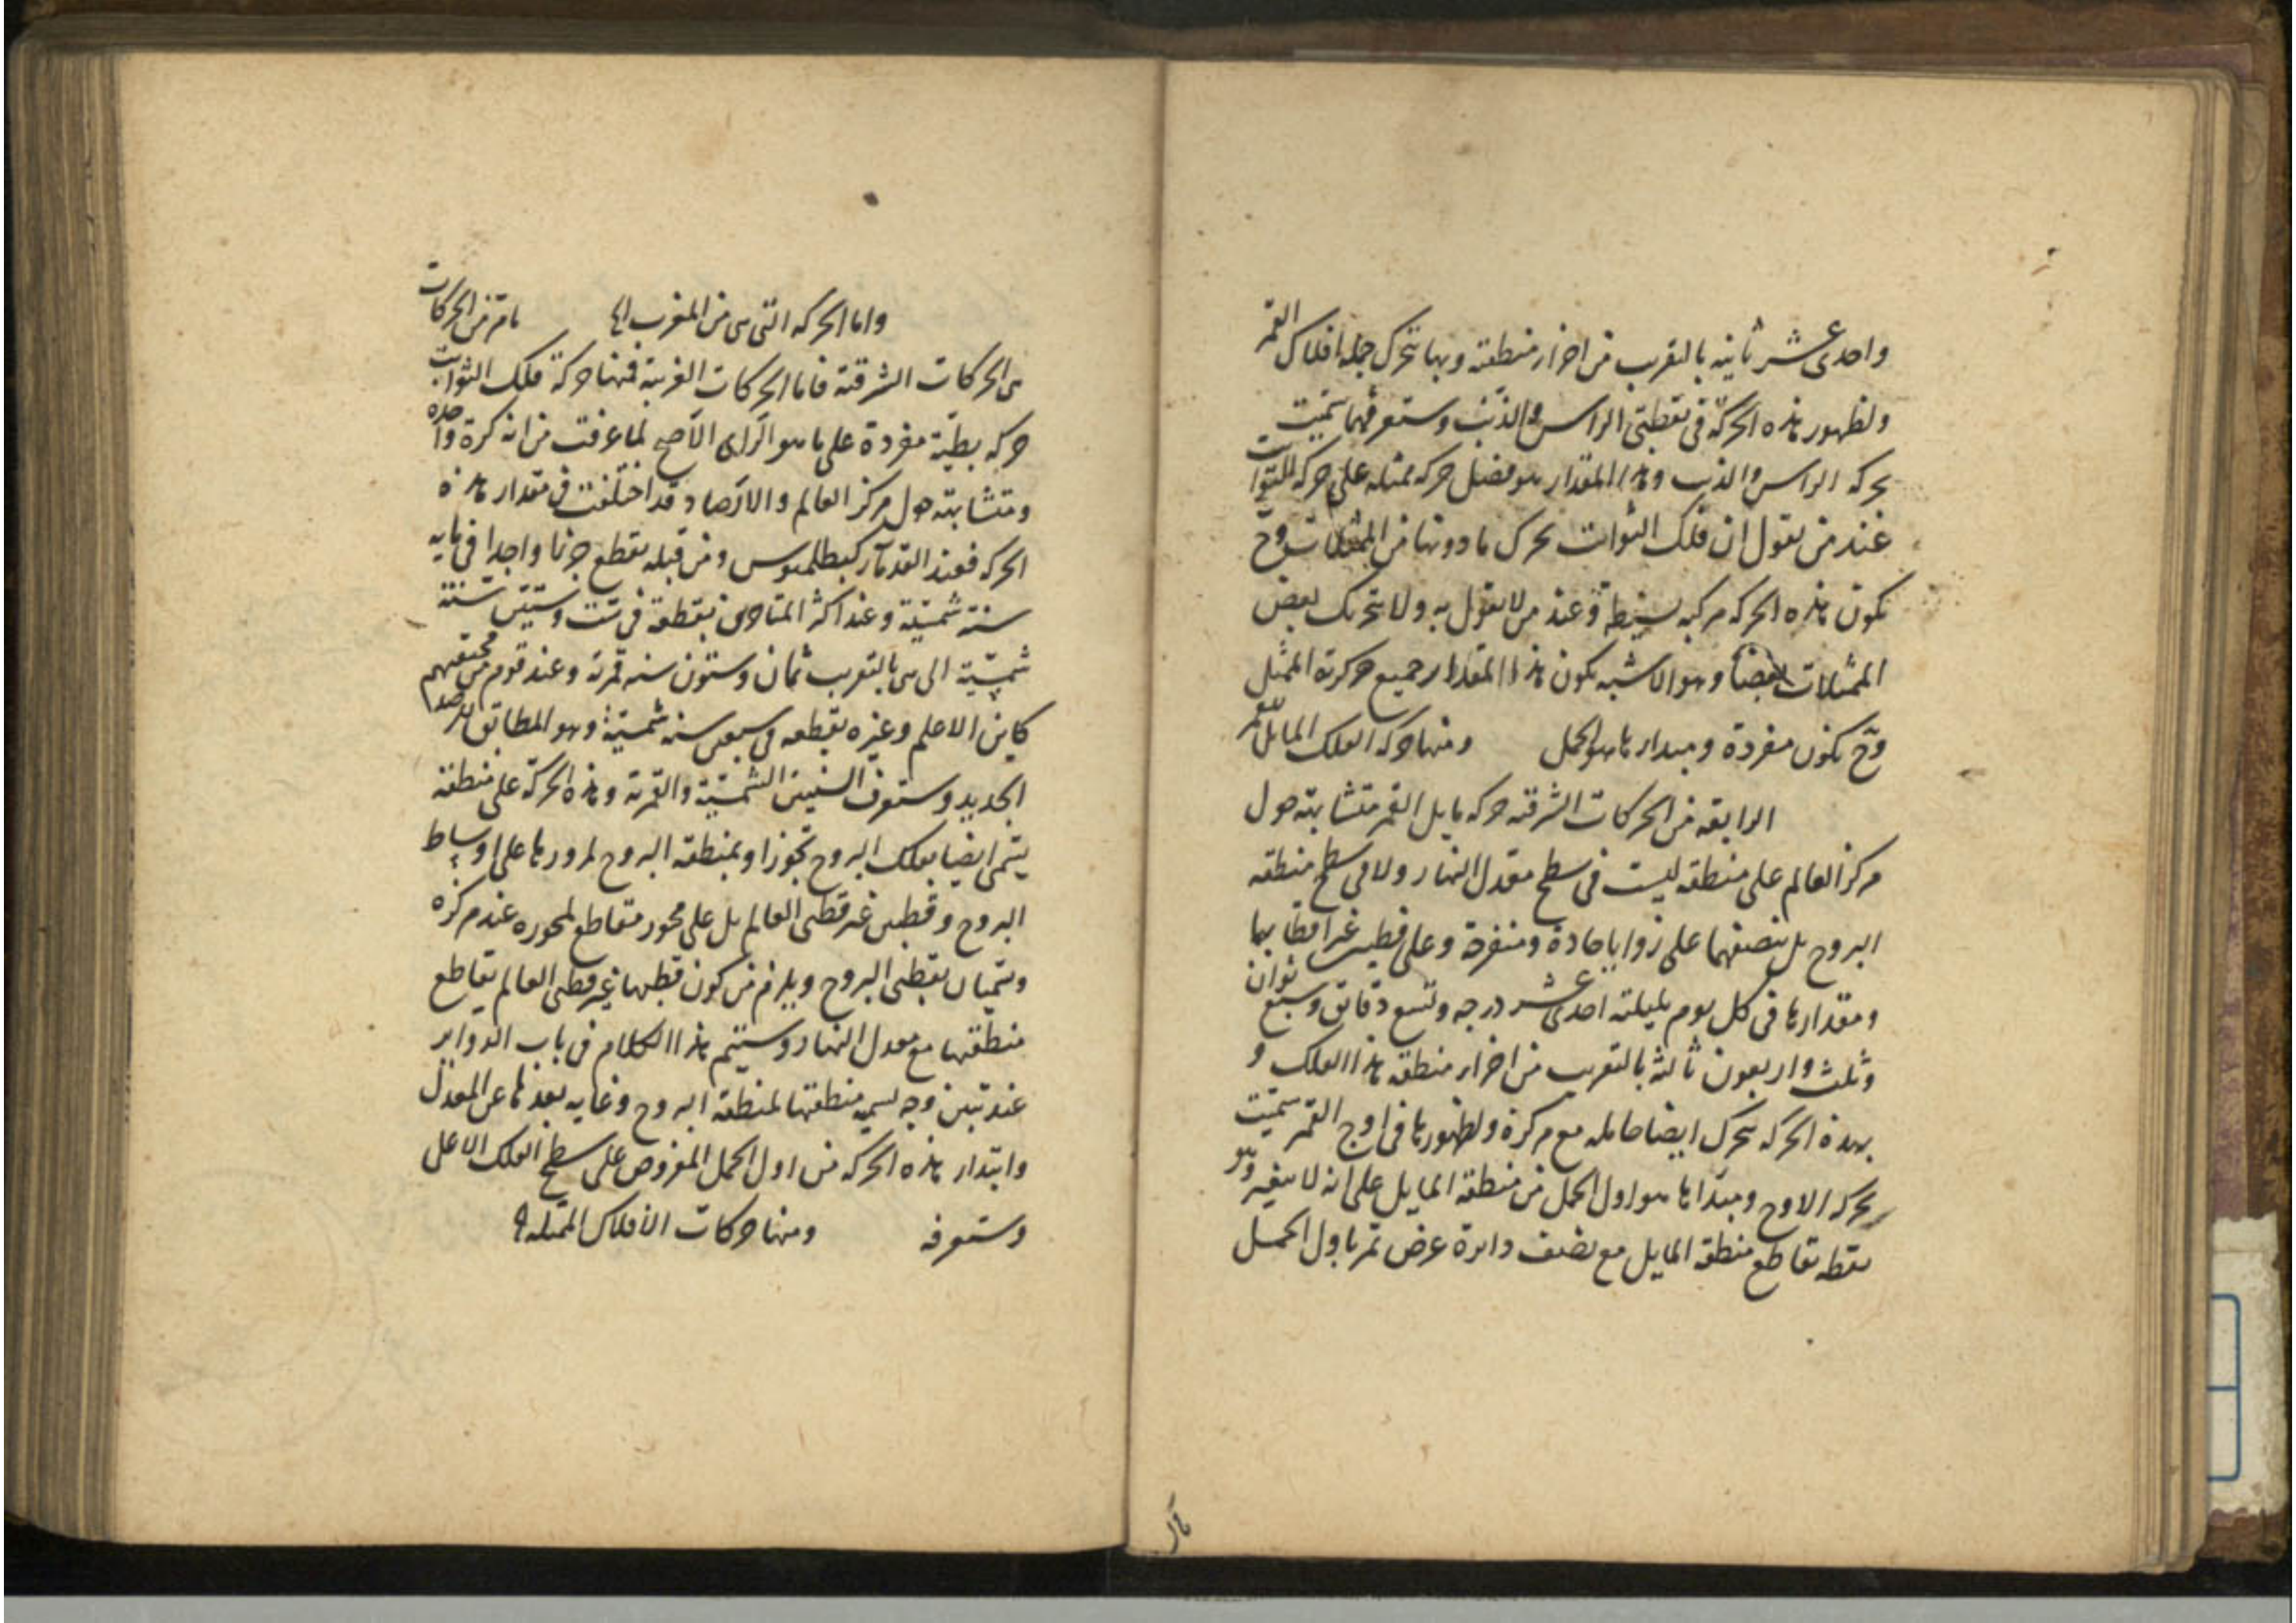 واحدى عشر ثانيه بالتقريب من اجزاء منطقته وبها تتحرك جملة افلاك القمر
ولظهور هذه الحركة فى نقطتى الراس والذنب وستعرفهما سميت
بحركه الراس والذنب وهذا المقدار هو فضل حركه ممثله على حركه الثوابت
عند من يقول ان فلك الثوابت يحرك ما دونها من الممثلات وح
يكون هذه الحركه مركبه بسيطة وعند من لا يقول به ولا بتحريك بعض
الممثلات بعضا وهو الاشبه يكون هذا المقدار جميع حركة الممثل
وح يكون مفردة ومبداءها هو الحمل ومنها حركة الفلك المايل للقمر
الرابعه من الحركات الشرقيه حركه مايل القمر متشابهة حول
مركز العالم على منطقه ليست فى سطح معدل النهار ولا فى سطح منطقه
البروج بل ينصفهما على زوايا حادة ومنفرجة وعلى قطبين غير اقطابهما
ومقدارها فى كل يوم بليلته احدى عشر درجه وتسع دقائق وسبع ثوان
وثلث واربعون ثالثه بالتقريب من اجزاء منطقه هذا الفلك و
بهذه الحركه يتحرك ايضا حامله مع مركزه ولظهورها فى اوج القمر سميت
بحركه الاوج ومبداها هو اول الحمل من منطقه المايل على انه لا يتغير وهو
نقطه تقاطع منطقه المايل مع نصف دايرة عرض تمر باول الحمل
واما الحركه التى هى من المغرب ما مر من الحركات
هى الحركات الشرقية فاما الحركات الغربية فمنها حركة فلك الثوابت
حركه بطيئة مفردة على ما هو الراى الاصح لما عرفت من انه كرة واحده
ومتشابهة حول مركز العالم والارصاد قد اختلفت فى مقدار هذه
الحركه فعند القدماء كبطلميوس ومن قبله يقطع جزءا واحدا فى مايه
سنة شمسية وعند اكثر المتاخرين يقطعه فى ست وستين سنة
شمسية التى هى بالتقريب ثمان وستون سنه قمرية وعند قوم من محققيهم
كابن الاعلم وغيره يقطعه فى سبعين سنه شمسية وهو المطابق للرصد
الجديد وستعرف السنين الشمسية والقمرية وهذه الحركة على منطقة
يتمى ايضا بفلك البروج تجوزا وبمنطقه البروج لمرورها على اوساط
البروج وقطبين غير قطبى العالم بل على محور متقاطع لمحوره عند مركزه
ويسميان بقطبى البروج ويلزم من كون قطبها غير قطبى العالم تقاطع
منطقتها مع معدل النهار وستتم هذا الكلام فى باب الدواير
عند تبين وجه تسميه منطقتها لمنطقه البروج وغايه بعدها عن المعدل
وابتداء هذه الحركه من اول الحمل المفروض على سطح الفلك الاعلى
وستعرفه ومنها حركات الافلاك الممثله